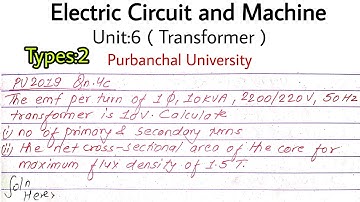 Electric Circuit and Machine
Unit:6 ( Transformer )
Types:2
Purbanchal University
PU2019 Qn.4c
The emf per turn of 1ϕ, 10KVA, 2200/220V, 50Hz
transformer is 10V. Calculate
(i) no of primary & secondary turns
(ii) the net cross-sectional area of the core for
maximum flux density of 1.5T.
Soln
Here,